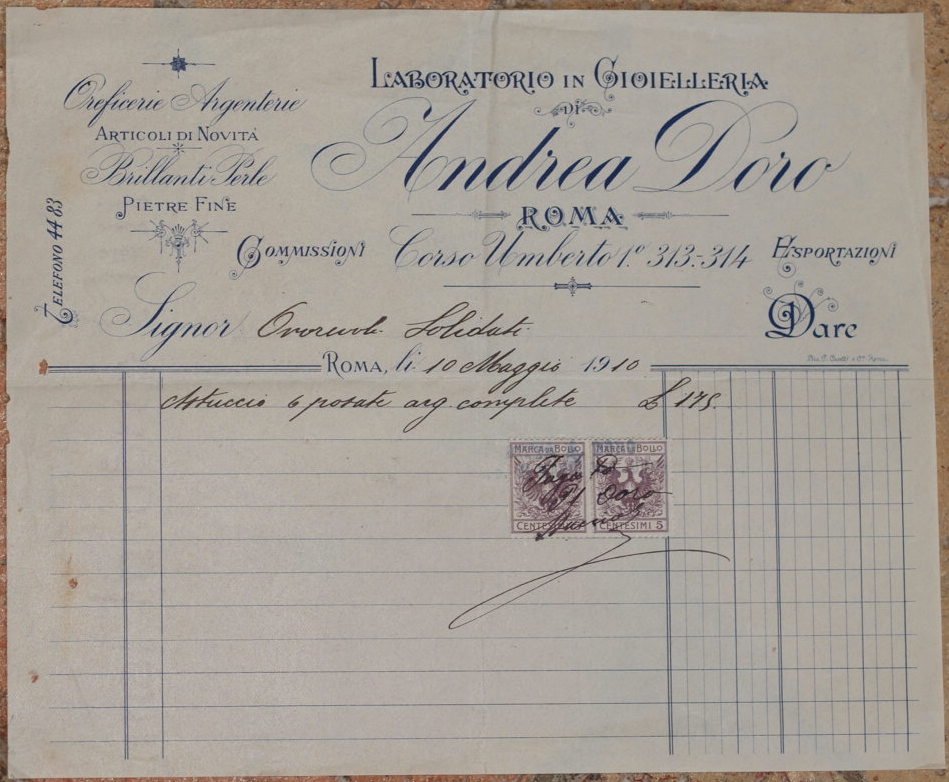 Oreficerie Argenterie
ARTICOLI DI NOVITÀ
Brillanti Perle
PIETRE FINE
TELEFONO 44 83
LABORATORIO IN GIOIELLERIA
DI
Andrea Doro
ROMA
COMMISSIONI Corso Umberto 1º. 313-314 ESPORTAZIONI
Signor Solidati Dare
ROMA, li 10 Maggio 1910
Astuccio 6 posate arg. complete £ 175.
MARCA DA BOLLO MARCA DA BOLLO
Doro
CENTESIMI CENTESIMI 5